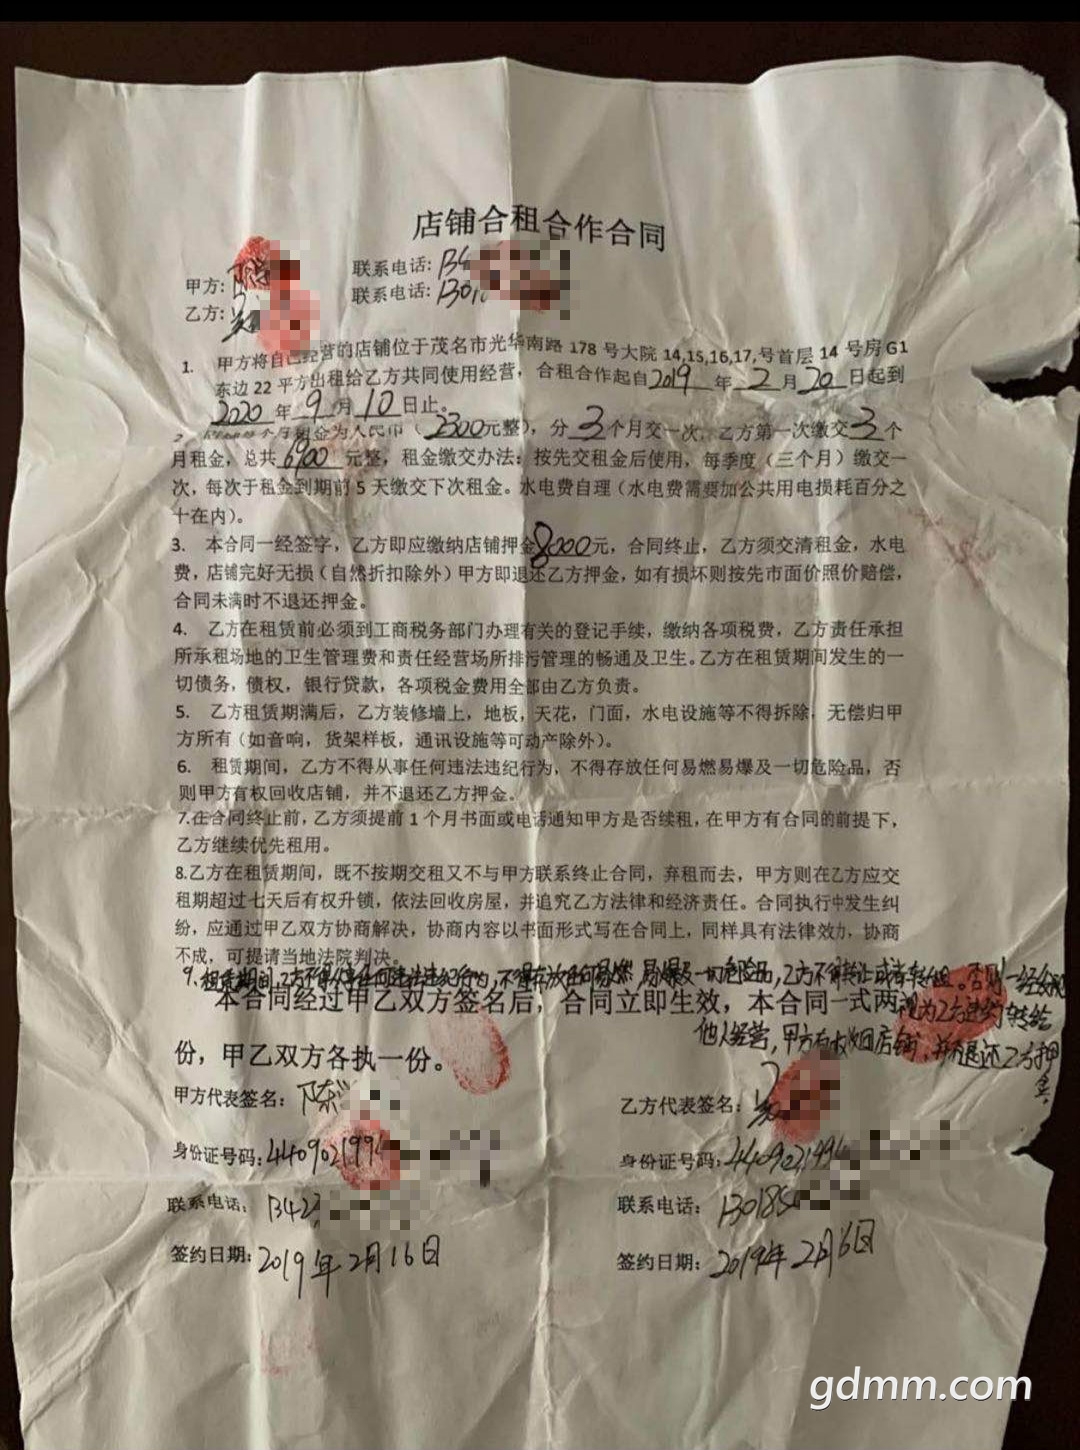 店铺合租合作合同
甲方: 联系电话:
乙方: 联系电话:
1. 甲方将自己经营的店铺位于茂名市光华南路 178 号大院 14,15,16,17,号首层 14 号房 G1
东边 22 平方出租给乙方共同使用经营，合租合作起自2019年 2 月 20 日起到
2020 年 9 月 10 日止。
月租金为人民币（2300元整），分 3 个月交一次，乙方第一次缴交 3 个
月租金，总共 6900 元整，租金缴交办法：按先交租金后使用，每季度（三个月）缴交一
次，每次于租金到期前 5 天缴交下次租金。水电费自理（水电费需要加公共用电损耗百分之
十在内）。
3. 本合同一经签字，乙方即应缴纳店铺押金8000元，合同终止，乙方须交清租金，水电
费，店铺完好无损（自然折扣除外）甲方即退还乙方押金，如有损坏则按先市面价照价赔偿，
合同未满时不退还押金。
4. 乙方在租赁前必须到工商税务部门办理有关的登记手续，缴纳各项税费，乙方责任承担
所承租场地的卫生管理费和责任经营场所排污管理的畅通及卫生。乙方在租赁期间发生的一
切债务，债权，银行贷款，各项税金费用全部由乙方负责。
5. 乙方租赁期满后，乙方装修墙上，地板，天花，门面，水电设施等不得拆除，无偿归甲
方所有（如音响，货架样板，通讯设施等可动产除外）。
6. 租赁期间，乙方不得从事任何违法违纪行为，不得存放任何易燃易爆及一切危险品，否
则甲方有权回收店铺，并不退还乙方押金。
7.在合同终止前，乙方须提前 1 个月书面或电话通知甲方是否续租，在甲方有合同的前提下，
乙方继续优先租用。
8.乙方在租赁期间，既不按期交租又不与甲方联系终止合同，弃租而去，甲方则在乙方应交
租期超过七天后有权升锁，依法回收房屋，并追究乙方法律和经济责任。合同执行中发生纠
纷，应通过甲乙双方协商解决，协商内容以书面形式写在合同上，同样具有法律效力，协商
不成，可提请当地法院判决。
9.租赁期间,乙方不得从事任何违法违纪行为,不得存放任何易燃易爆及一切危险品,乙方不得转让或者转租。否则一经发现
本合同经过甲乙双方签名后，合同立即生效，本合同一式两
视为乙方违约转给
他人经营,甲方有权收回店铺,并不退还乙方押金.
份，甲乙双方各执一份。
甲方代表签名：陈 乙方代表签名：
身份证号码:440902199 身份证号码:440902199
联系电话: 13423 联系电话: 130185
签约日期:2019年2月16日 签约日期: 2019年2月16日
gdmm.com